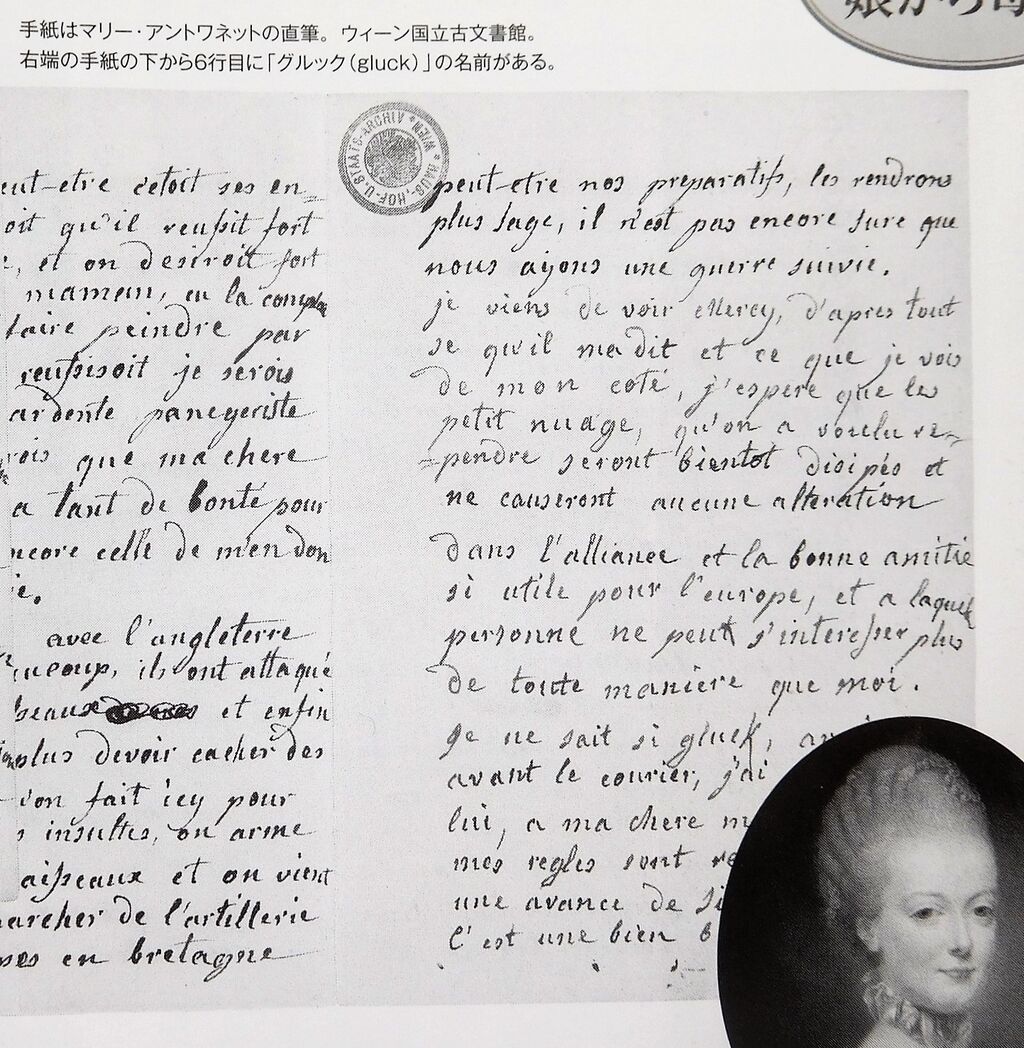 手紙はマリー・アントワネットの直筆。ウィーン国立古文書館。
右端の手紙の下から6行目に「グルック(gluck)」の名前がある。
娘から母
HAUS-, HOF- U. STAATS-ARCHIV * WIEN *
eut-etre c'etoit ses en=
oit qu'il reussit fort
, et on desiroit fort
maman, en la
faire peindre par
reussisoit je serois
ardente panegeriste
rois que ma chere
a tant de bonté pour
ncore celle de m'en don
ie.
avec l'angleterre
ucoup, ils ont attaqué
seaux et enfin
plus devoir cacher des
l'on fait icy pour
s insultes, on arme
aisseaux et on vient
archer de l'artillerie
nes en bretagne
peut-etre nos preparatifs, les rendrons
plus sage, il n'est pas encore sure que
nous ayons une guerre suivie.
je viens de voir Mercy, d'apres tout
se qu'il ma dit et ce que je vois
de mon coté, j'espere que les
petit nuage, qu'on a voulu re=
=pendre seront bientot disipés et
ne causeront aucune alteration
dans l'alliance et la bonne amitie
si utile pour l'europe, et a laquel
personne ne peut s'interesser plus
de toute maniere que moi.
je ne sait si gluck, ar
avant le courier, j'ai
lui, a ma chere m
mes regles sont re
une avance de si
c'est une bien b